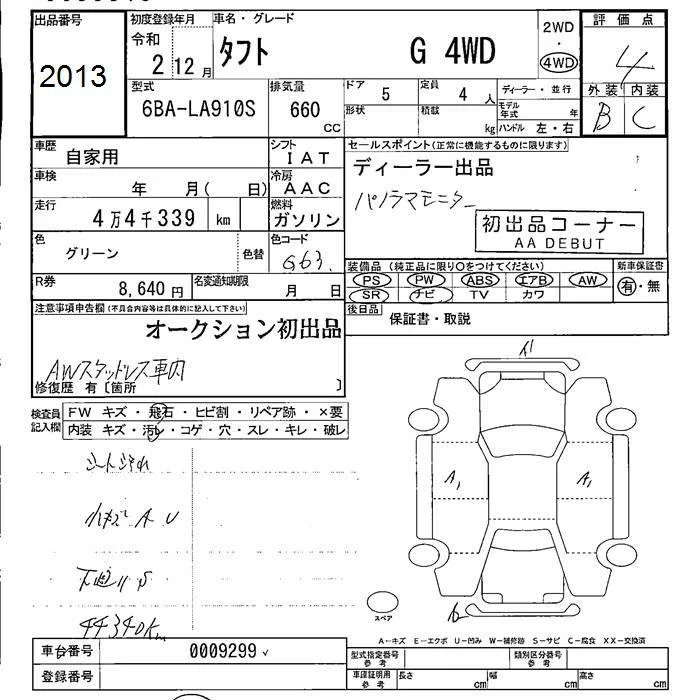 出品番号
2013
初度登録年月
令和
2 12月
車名・グレード
タフト G 4WD
2WD
・
4WD
評価点
4
外装 内装
B C
型式
6BA-LA910S
排気量
660
CC
ドア
5
定員
4 人
形状
積載
kg
ディーラー・並行
モデル年式 年
ハンドル 左・右
車歴
自家用
シフト
IAT
車検
年 月( 日)
冷房
AAC
走行
4万4千339 km
燃料
ガソリン
色
グリーン
色替
色コード
G63
R券
8,640円
名変通知期限
月 日
セールスポイント(正常に機能するものに限ります)
ディーラー出品
パノラマモニター
初出品コーナー
AA DEBUT
装備品(純正品に限り○をつけてください)
PS PW ABS エアB AW
SR ナビ TV カワ
新車保証書
有・無
後日品
保証書・取説
注意事項申告欄(不具合内容等は具体的に記入して下さい)
オークション初出品
AWスタッドレス車内
修復歴 有〔箇所 〕
検査員
記入欄
FW キズ・飛石・ヒビ割・リペア跡・×要
内装 キズ・汚レ・コゲ・穴・スレ・キレ・破レ
小キズ A U
下廻り S
44340km
A1
A1
スペア
A-キズ E-エクボ U-凹み W-補修跡 S-サビ C-腐食 XX-交換済
車台番号
0009299
登録番号
型式指定番号
参考
類別区分番号
参考
車庫証明用
参考
長さ cm
幅 cm
高さ cm